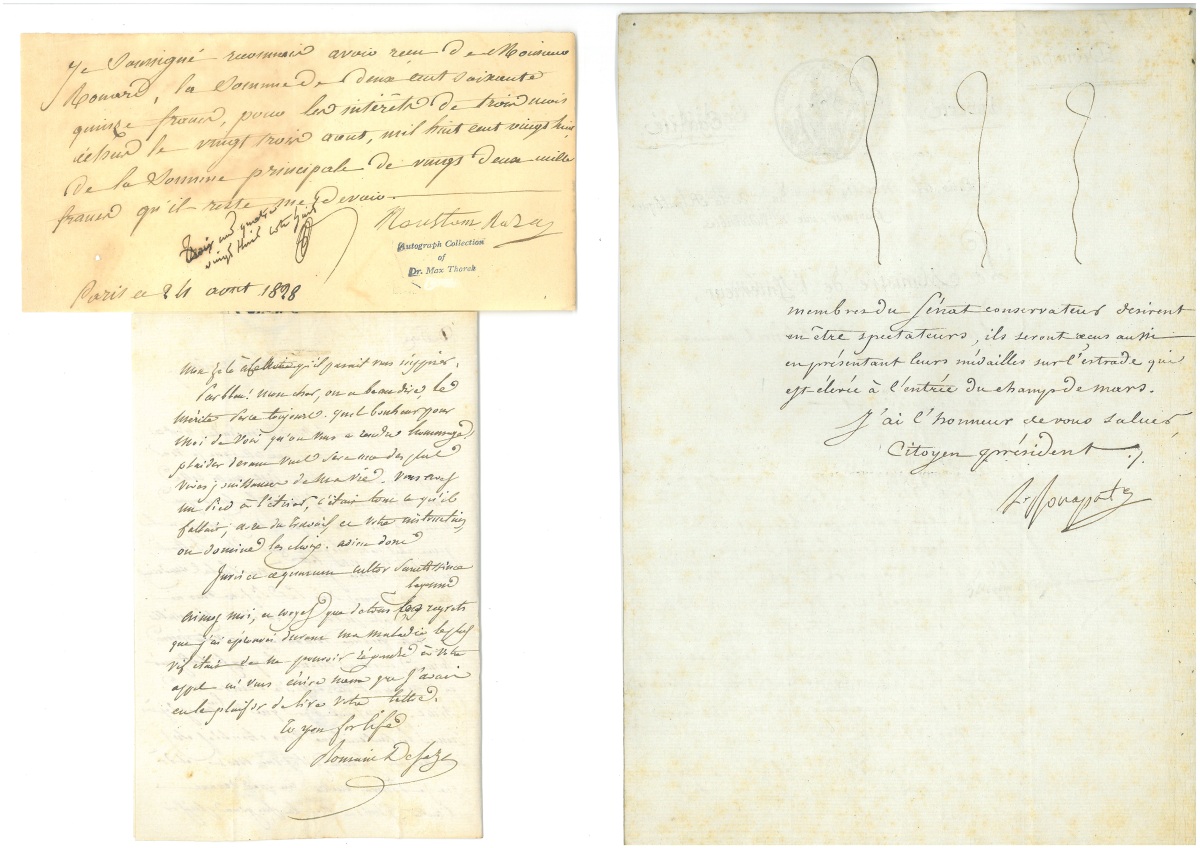 Je Soussigné reconnois avoir recu de Monsieur
Rouard, la Somme de deux cent soixante
quinze francs, pour les intérêts de trois mois
échus le vingt trois aout, mil huit cent vingt huit
de la Somme principale de vingt deux mille
francs qu'il reste me devoir.
vingt huit
Roustam Raza
Autograph Collection
of
Dr. Max Thorek
Paris ce 24 aout 1828
mon zèle qu'il parait vous inspirer.
Parbleu! mon cher, on a beau dire, le
mérite perce toujours. quel bonheur pour
moi de voir qu'on vous a rendu hommage!
plaider devant vous sera une des plus
vives jouissances de ma vie. vous avez
un pied à l'étrier, c'était tout ce qu'il
fallait; avec du travail et votre
on domine les choses. adieu donc
Juris et æquarum cultor Sanctissime
legum
aimez moi, et croyez que de tous les regrets
que j'ai éprouvé durant ma maladie le plus
vif était de ne pouvoir répondre à votre
appel ni vous écrire même que j'avais
eu le plaisir de lire votre lettre.
to you for life
Romain Deseze
membres du Sénat conservateur desirent
en être spectateurs, ils seront recus aussi
en présentant leurs médailles sur l'estrade qui
est élevée à l'entrée du champ de mars.
J'ai l'honneur de vous saluer,
Citoyen président ./.
L. Bonaparte